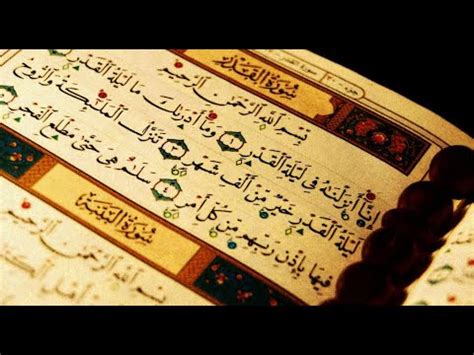 سُورَةُ الْقَدْرِ
بِسْمِ اللَّهِ الرَّحْمَٰنِ الرَّحِيمِ
إِنَّا أَنزَلْنَٰهُ فِي لَيْلَةِ الْقَدْرِ ١ وَمَا أَدْرَىٰكَ مَا لَيْلَةُ الْقَدْرِ ٢
لَيْلَةُ الْقَدْرِ خَيْرٌ مِّنْ أَلْفِ شَهْرٍ ٣ تَنَزَّلُ الْمَلَٰئِكَةُ وَالرُّوحُ
فِيهَا بِإِذْنِ رَبِّهِم مِّن كُلِّ أَمْرٍ ٤ سَلَٰمٌ هِيَ حَتَّىٰ مَطْلَعِ الْفَجْرِ
سُورَةُ الْبَيِّنَةِ
بِسْمِ اللَّهِ الرَّحْمَٰنِ